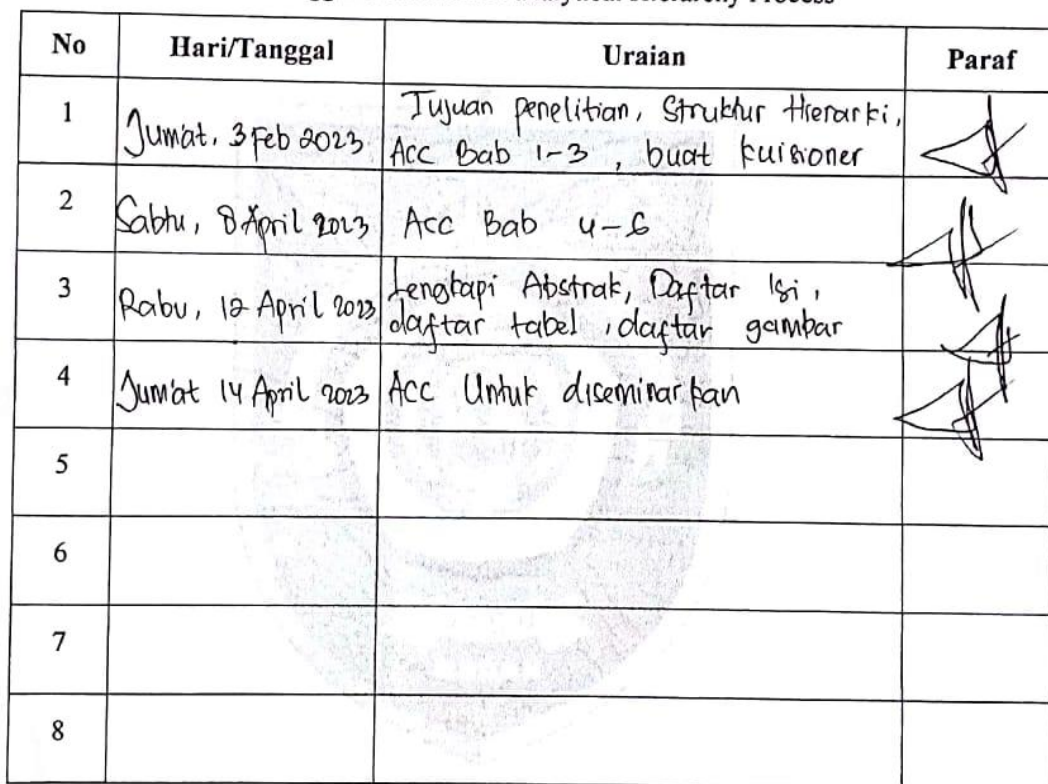 Hierarchy Process
No Hari/Tanggal Uraian Paraf
1 Jumat, 3 Feb 2023 Tujuan penelitian, Struktur Hierarki,
Acc Bab 1-3, buat kuisioner
2 Sabtu, 8 April 2023 Acc Bab 4-6
3 Rabu, 12 April 2023 Lengkapi Abstrak, Daftar Isi,
daftar tabel, daftar gambar
4 Jum'at 14 April 2023 Acc Untuk diseminarkan
5
6
7
8